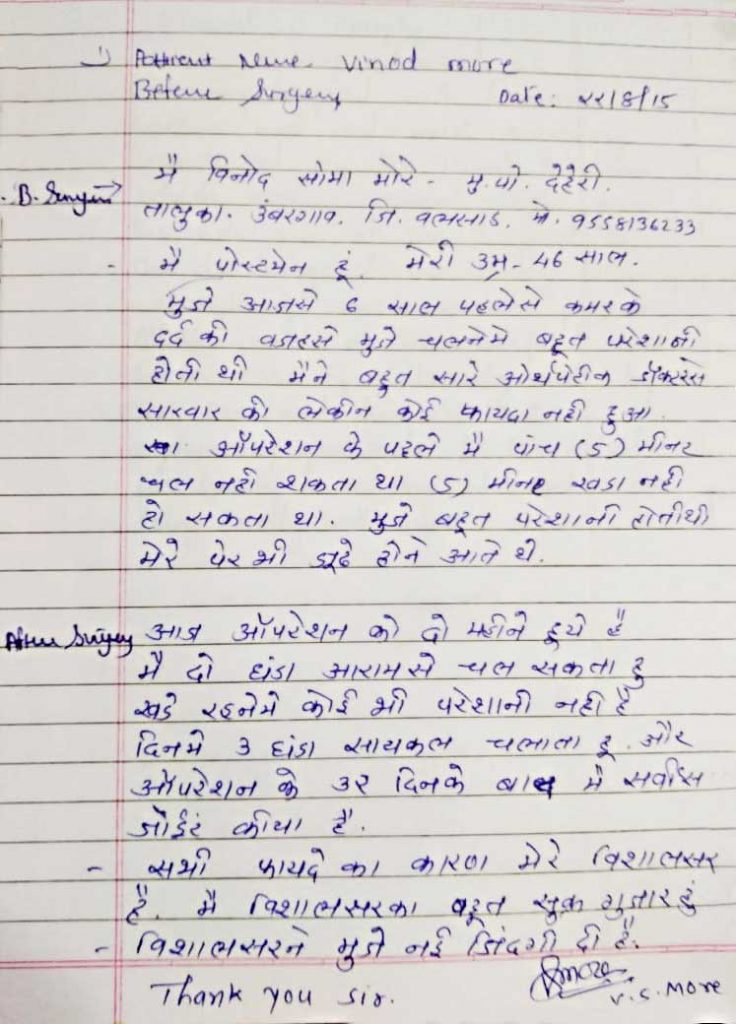 1) Patient Name Vinod more
Before Surgery Date: 22/8/15
मै विनोद सोमा मोरे - मु.पो. देहेरी.
B. Surgery → तालुका. उंबरगाव. जि. वलसाड. मो. 9558136233
- मै पोस्टमेन हूं. मेरी उम्र - 46 साल.
मुझे आजसे 6 साल पहलेसे कमर के
दर्द की वजहसे मुझे चलनेमे बहूत परेशानी
होती थी मैने बहूत सारे ओर्थोपेडीक डॉक्टरसे
सारवार की लेकीन कोई फायदा नही हुआ.
ऑपरेशन के पहले मै पांच (5) मीनट
चल नही शकता था (5) मीनट खडा नही
हो सकता था. मुझे बहूत परेशानी होतीथी
मेरे पेर भी झूठे होने आते थे.
After Surgery आज ऑपरेशन को दो महीने हूये है
मै दो घंटा आरामसे चल सकता हु
खडे रहनेमे कोई भी परेशानी नही है
दिनमे 3 घंटा सायकल चलाता हू. और
ऑपरेशन के 32 दिनके बाद मै सर्वीस
जोईंट कीया है.
- सभी फायदे का कारण मेरे विशालसर
है. मै विशालसरका बहूत सुक्र गुजार हुं
- विशालसरने मुझे नई जिंदगी दी है.
Thank you Sir. Vsmore
V. S. More